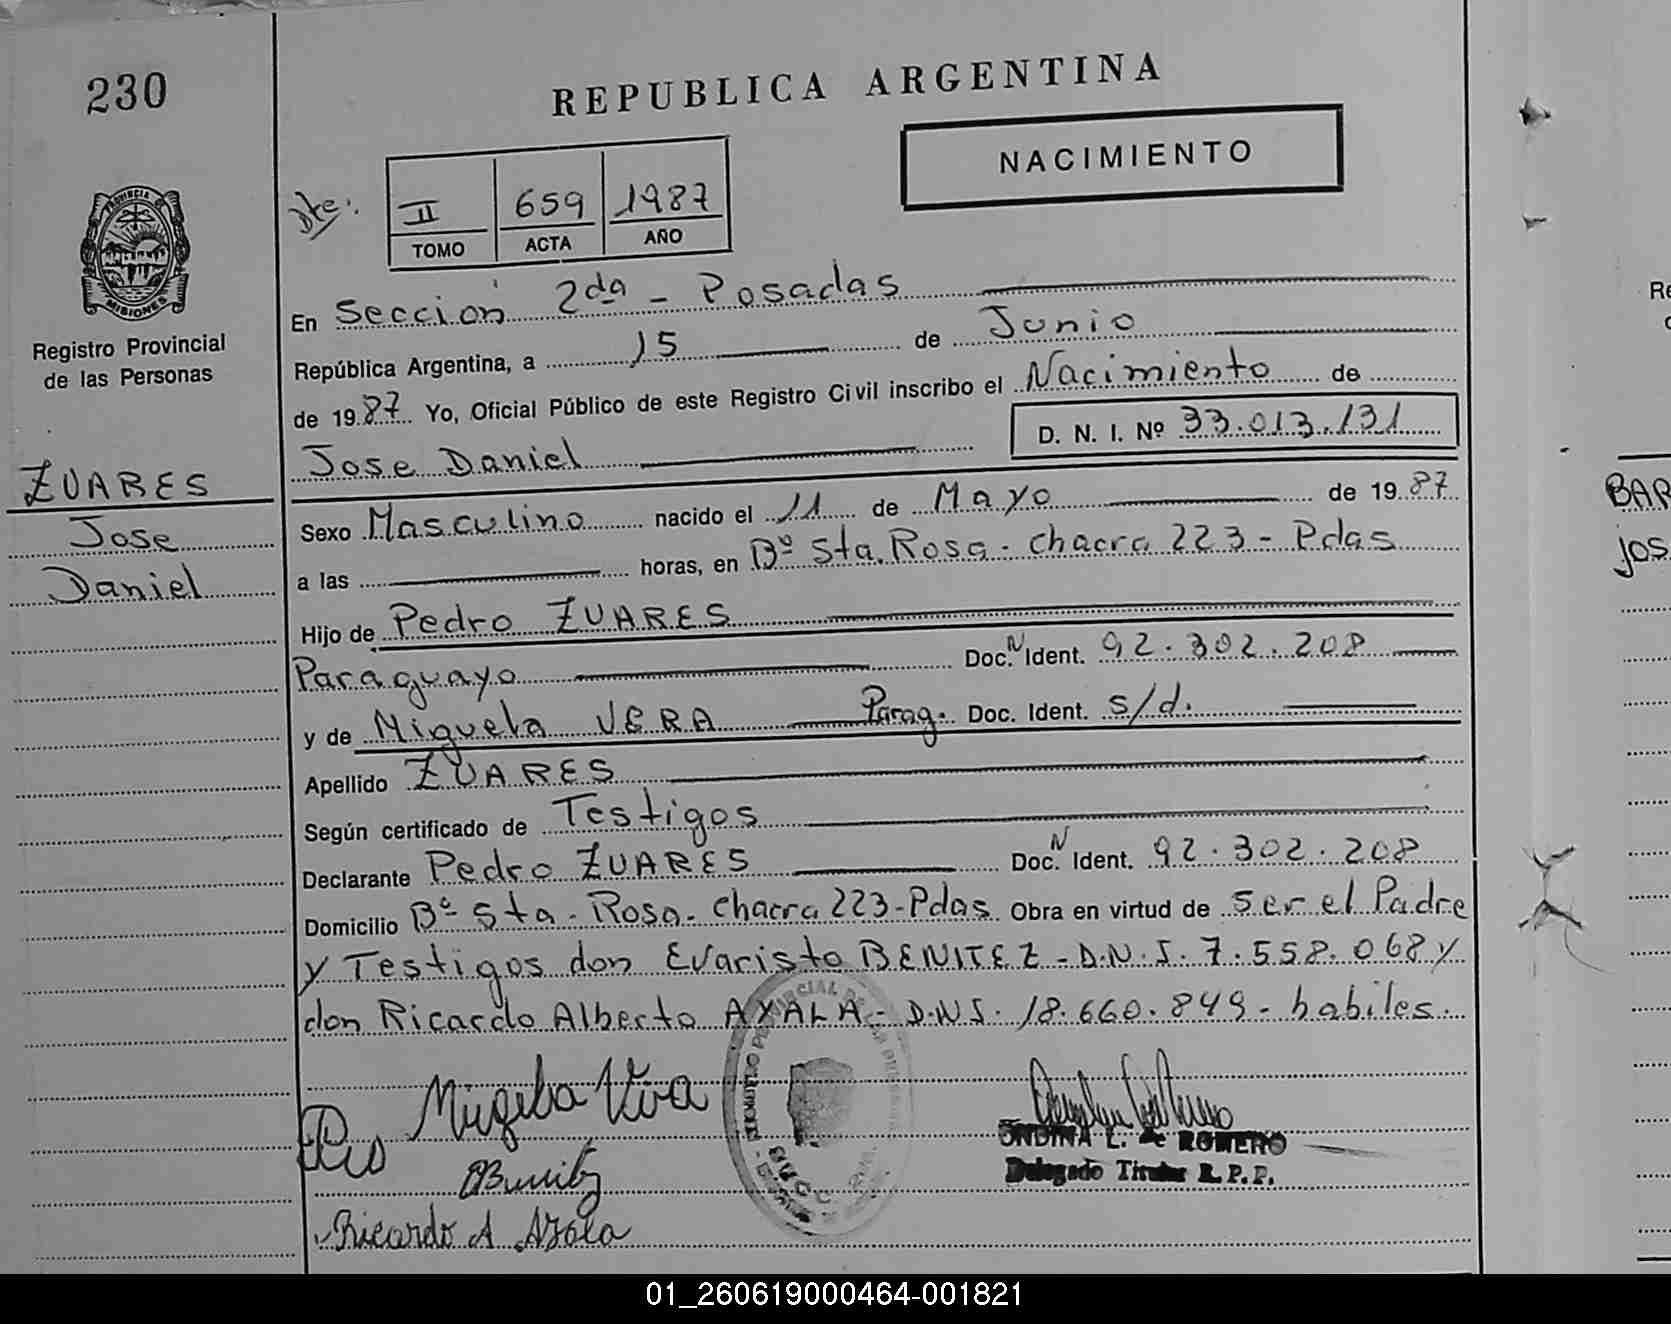 230
REPUBLICA ARGENTINA
NACIMIENTO
Dte:
II 659 1987
TOMO ACTA AÑO
PROVINCIA DE
MISIONES
Registro Provincial
de las Personas
En Sección 2da - Posadas
República Argentina, a 15 de Junio
de 1987 Yo, Oficial Público de este Registro Civil inscribo el Nacimiento de
Jose Daniel D. N. I. Nº 33.013.131
ZUARES
Jose
Daniel
Sexo Masculino nacido el 11 de Mayo de 1987
a las horas, en Bº Sta. Rosa - chacra 223 - Pdas
Hijo de Pedro ZUARES
Paraguayo Doc. N Ident. 92.302.208
y de Miguela VERA Parag. Doc. Ident. s/d.
Apellido ZUARES
Según certificado de Testigos
Declarante Pedro ZUARES Doc. N Ident. 92.302.208
Domicilio Bº Sta. Rosa - chacra 223 - Pdas Obra en virtud de ser el Padre
y Testigos don Evaristo BENITEZ - D.N.I. 7.558.068 y
don Ricardo Alberto AYALA - D.N.I. 18.660.849 - habiles.
Ricardo A Ayala
ONDINA L. de ROMERO
Delegado Titular R.P.P.
BAR
JOS
01_260619000464-001821